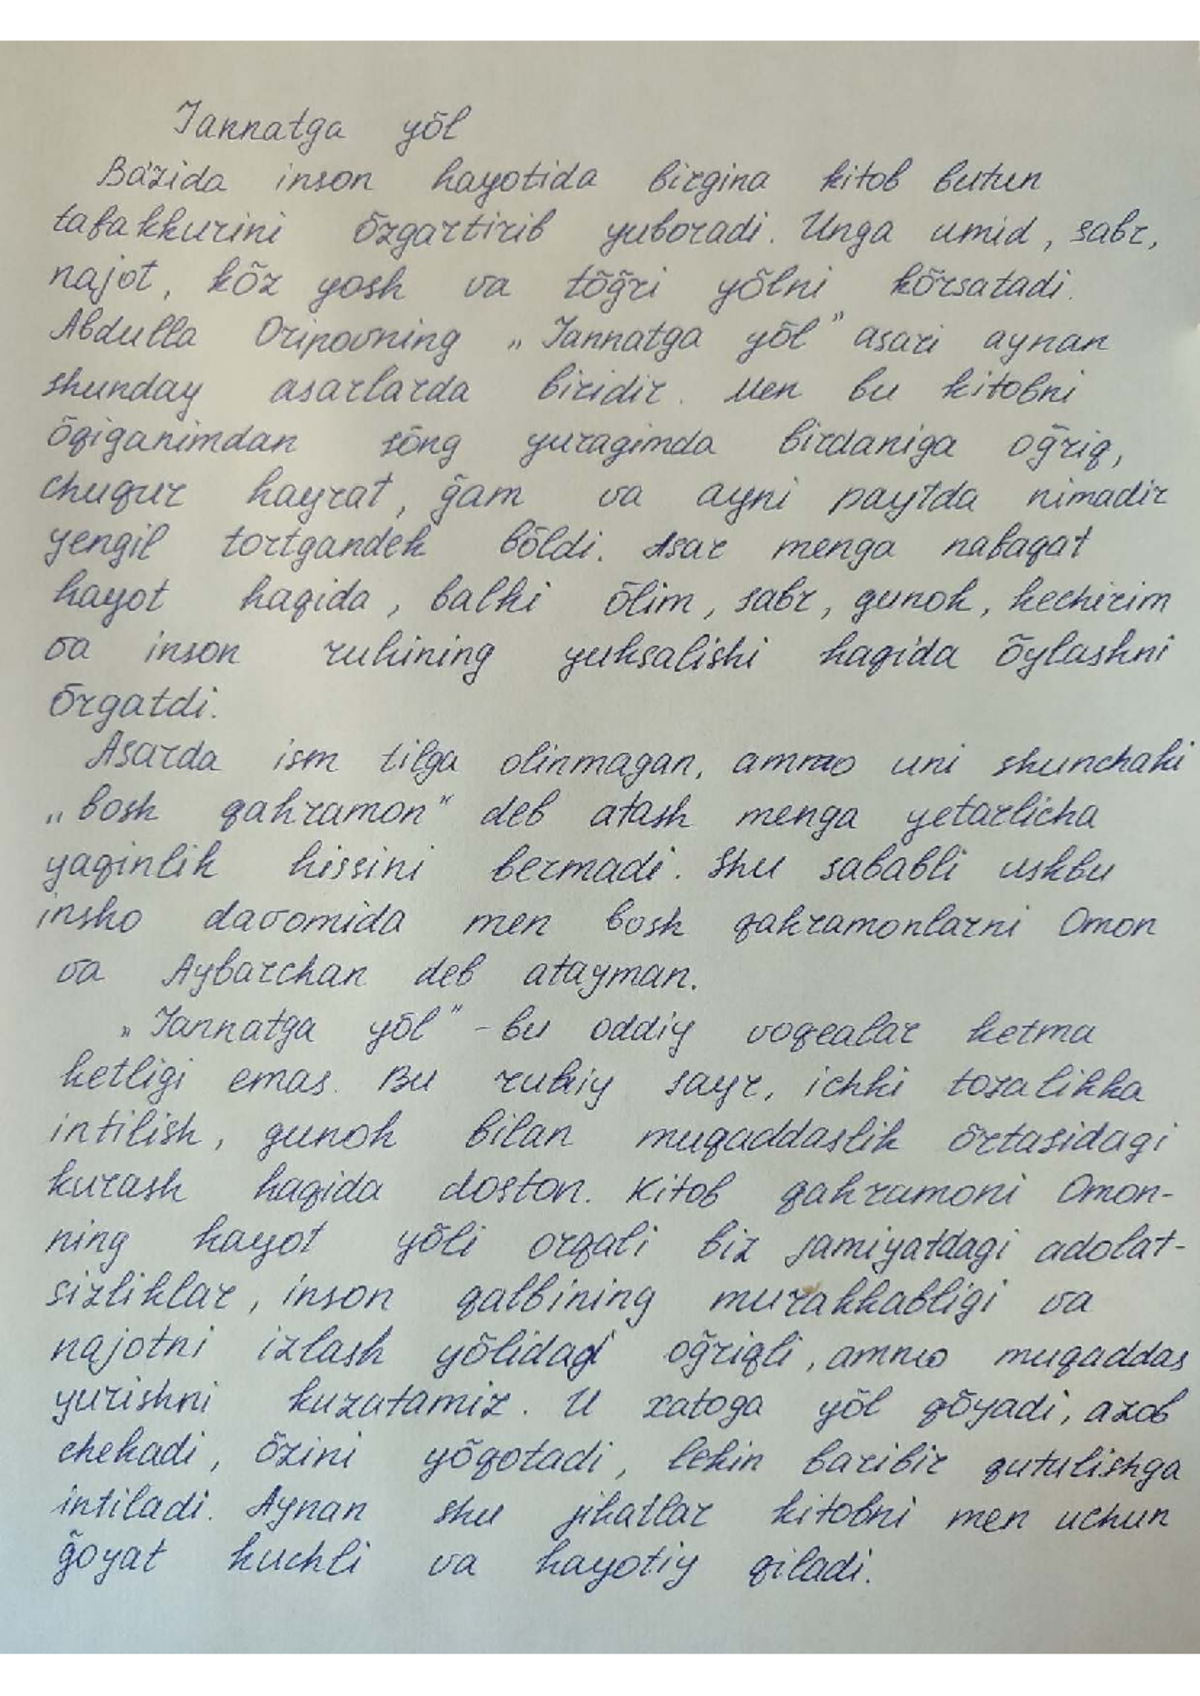 Jannatga yõl
Ba'zida inson hayotida birgina kitob butun
tafakkurini õzgartirib yuboradi. Unga umid, sabr,
najot, kõz yosh va tõg̃ri yõlni kõrsatadi.
Abdulla Oripovning „Jannatga yõl" asari aynan
shunday asarlarda biridir. Men bu kitobni
õqiganimdan sõng yuragimda birdaniga og̃riq,
chuqur hayrat, g̃am va ayni paytda nimadir
yengil tortgandek bõldi. Asar menga nafaqat
hayot haqida, balki õlim, sabr, gunoh, kechirim
va inson ruhining yuksalishi haqida õylashni
õrgatdi.
Asarda ism tilga olinmagan, ammo uni shunchaki
„bosh qahramon" deb atash menga yetarlicha
yaqinlik hissini bermadi. Shu sababli ushbu
insho davomida men bosh qahramonlarni Omon
va Aybarchan deb atayman.
„Jannatga yõl" - bu oddiy voqealar ketma
ketligi emas. Bu ruhiy sayr, ichki tozalikka
intilish, gunoh bilan muqaddaslik õrtasidagi
kurash haqida doston. Kitob qahramoni Omon-
ning hayot yõli orqali biz jamiyatdagi adolat-
sizliklar, inson qalbining murakkabligi va
najotni izlash yõlidagi og̃riqli, ammo muqaddas
yurishni kuzatamiz. U xatoga yõl qõyadi, azob
chekadi, õzini yõqotadi, lekin baribir qutulishga
intiladi. Aynan shu jihatlar kitobni men uchun
g̃oyat kuchli va hayotiy qiladi.